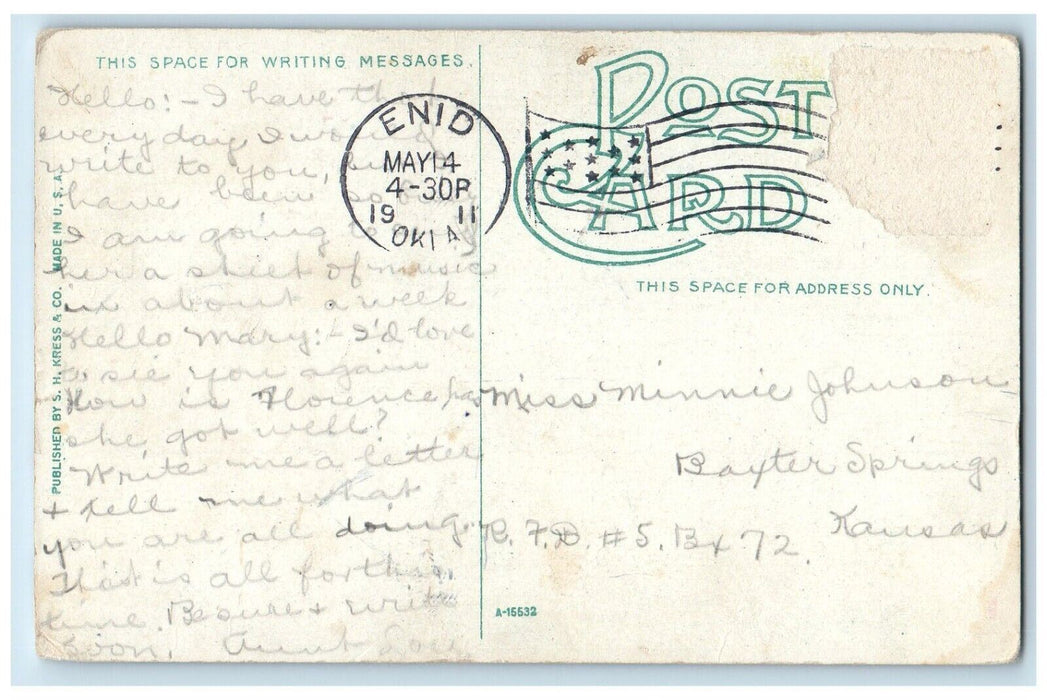 THIS SPACE FOR WRITING MESSAGES.
Hello:- I have
every day I would
write to you, but I
have been so
I am going to
her a sheet of music
in about a week
Hello Mary:- I'd love
to see you again
How is Florence has
she got well?
Write me a letter
+ tell me what
you are all doing.
That is all for this
time. Be sure + write
soon. Aunt Lou
PUBLISHED BY S. H. KRESS & CO. MADE IN U. S. A.
ENID
MAY 14
4-30P
19 11
OKLA
POST CARD
THIS SPACE FOR ADDRESS ONLY.
Miss Minnie Johnson
Baxter Springs
Kansas
R. F. D. #5. Bx 72.
A-15532